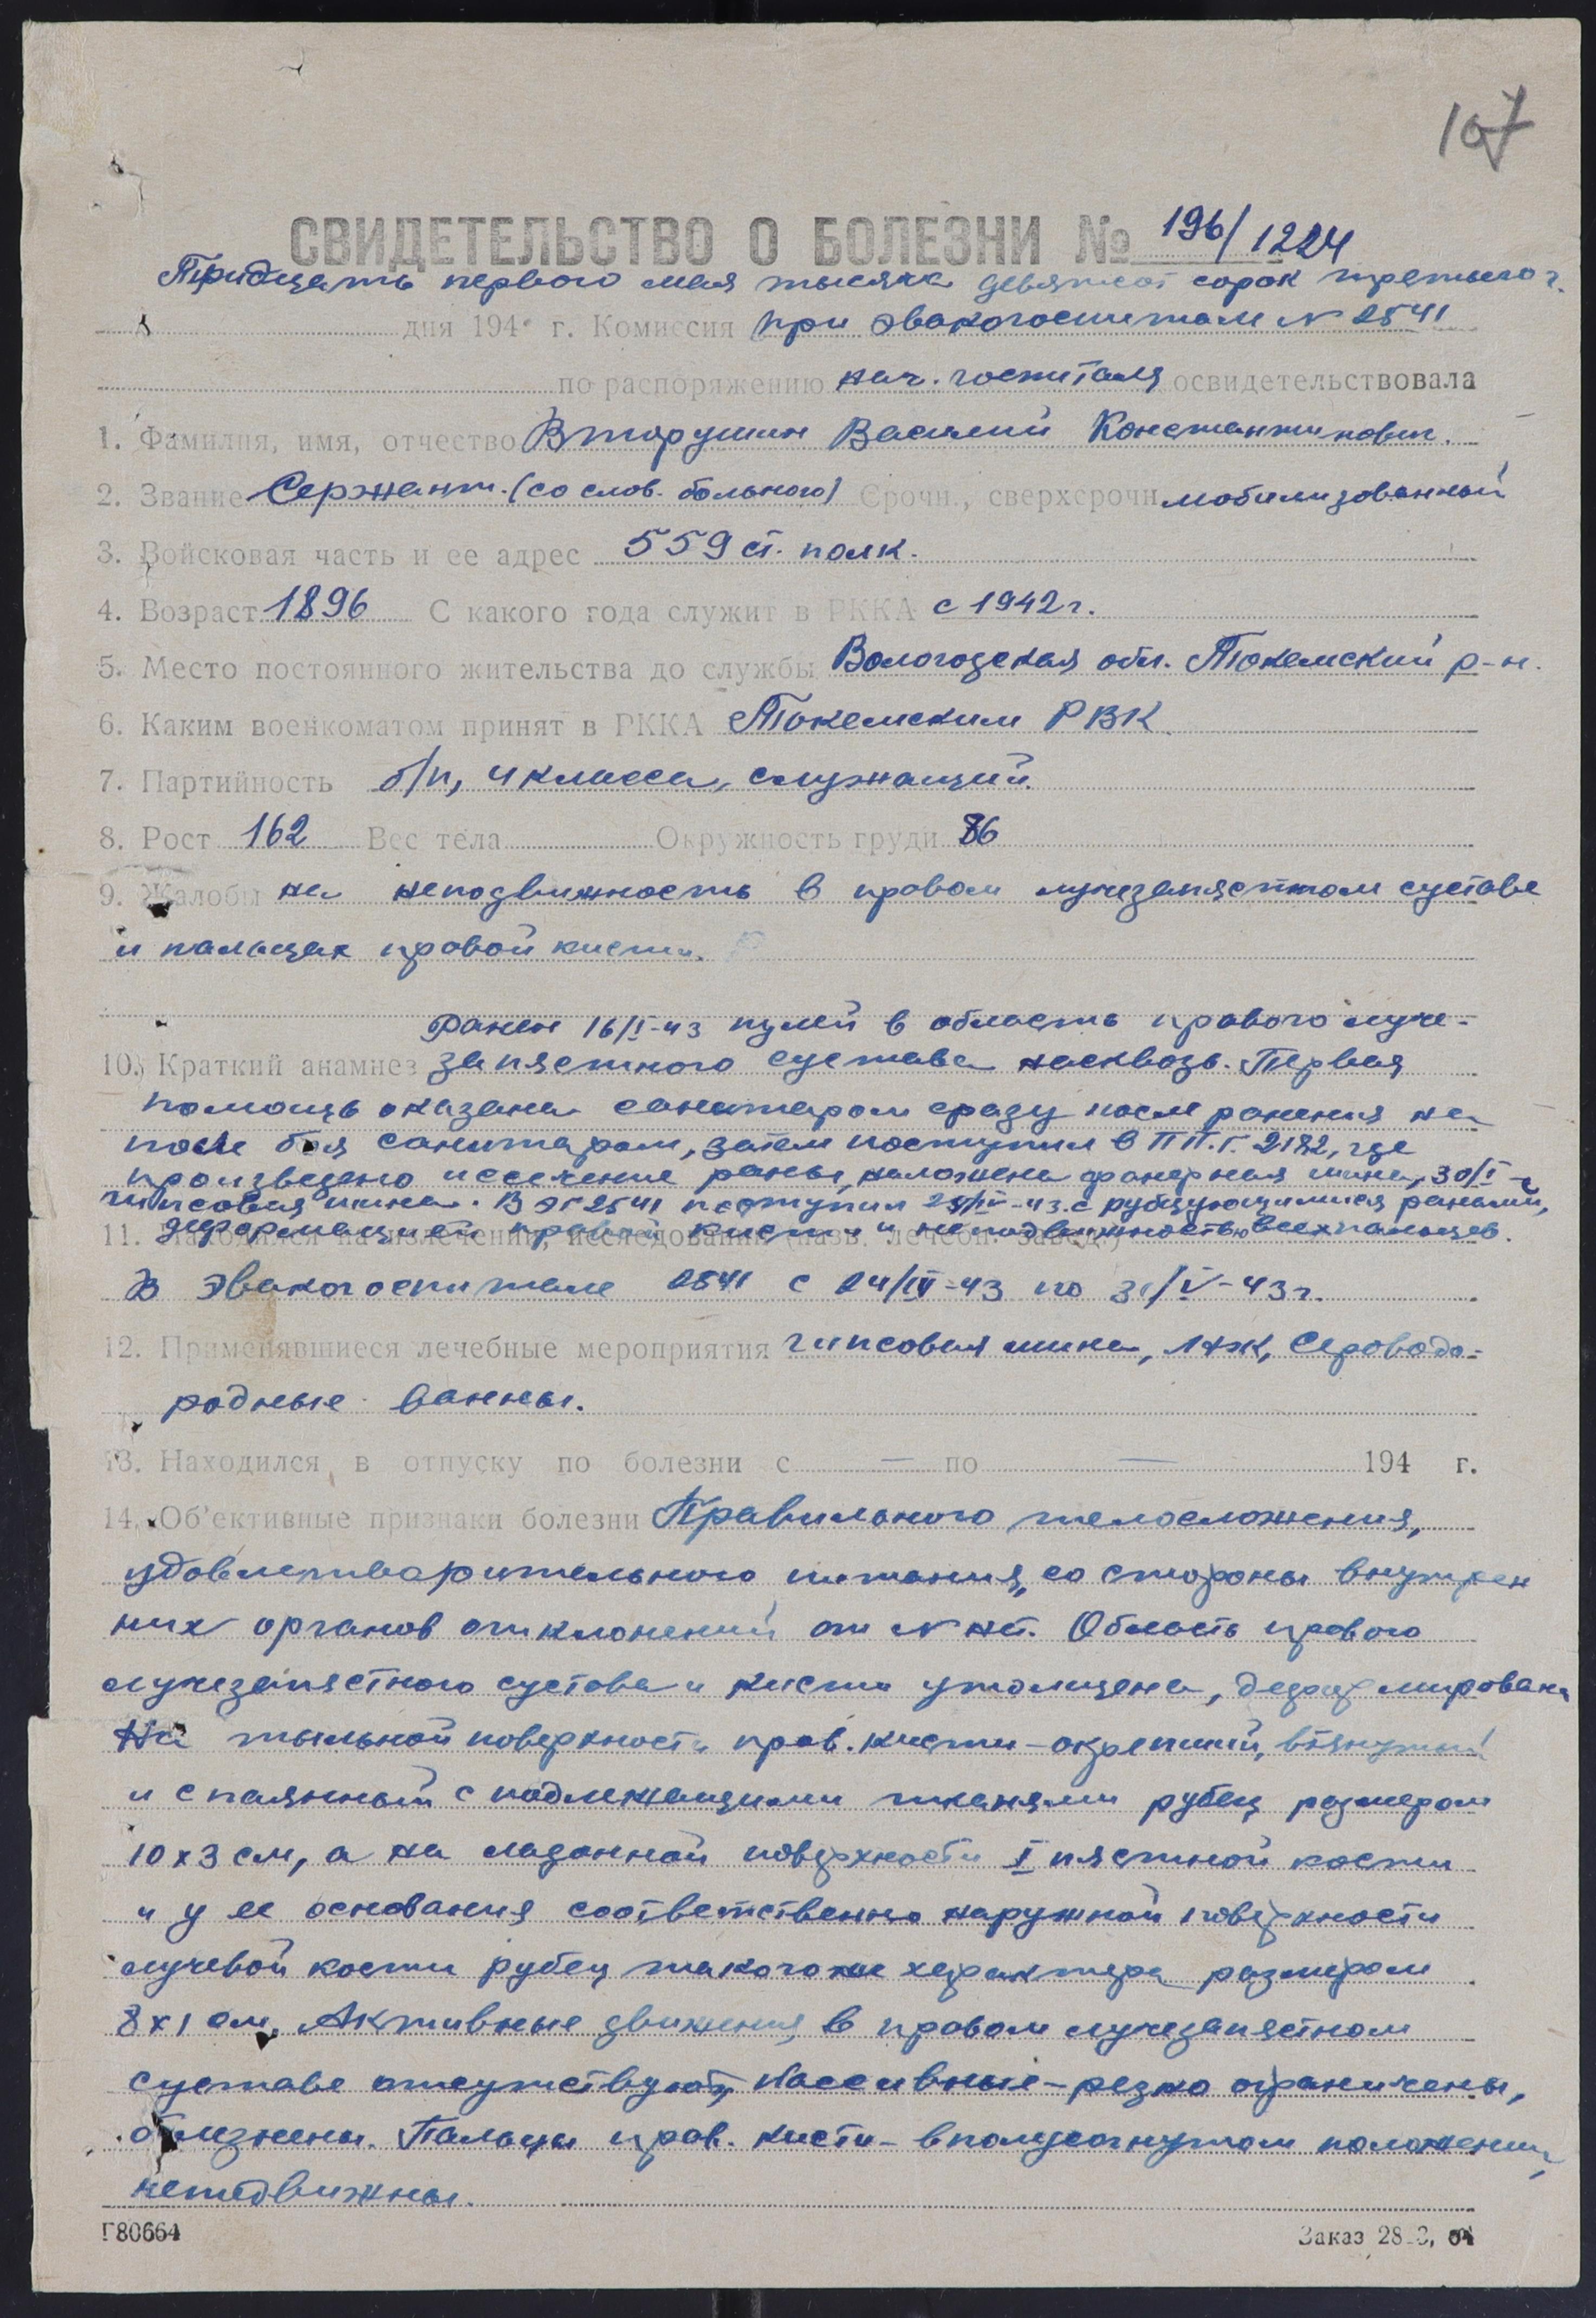 107
СВИДЕТЕЛЬСТВО О БОЛЕЗНИ № 196/1224
Тридцать первого мая тысяча девятсот сорок третьего г.
дня 194 г. Комиссия при эвакогоспитале N 2541
по распоряжению нач. госпиталя освидетельствовала
1. Фамилия, имя, отчество Вторушин Василий Константинович.
2. Звание Сержант. (со слов. больного) Срочн., сверхсрочн. мобилизованный
3. Войсковая часть и ее адрес 559 ст. полк.
4. Возраст 1896 С какого года служит в РККА с 1942 г.
5. Место постоянного жительства до службы Вологодская обл. Тотемский р-н.
6. Каким военкоматом принят в РККА Тотемским РВК
7. Партийность б/п, 4 класса, служащий.
8. Рост 162 Вес тела Окружность груди 86
9. Жалобы на неподвижность в правом лучезапястном суставе
и пальцах правой кисти.
Ранен 16/I-43 пулей в область правого луче-
10. Краткий анамнез запястного сустава насквозь. Первая
помощь оказана санитаром сразу после ранения на
поле боя санитаром, затем поступил в П.П.Г. 2182, где
произведено иссечение раны, наложена фанерная шина, 30/I -
гипсовая шина. В ЭГ 2541 поступил 24/IV-43 с рубцующимися ранами,
деформацией правой кисти и неподвижностью всех пальцев.
11. Находился на излечении, исследовании (назв. лечебн. завед.)
В Эвакогоспитале 2541 с 24/IV-43 по 31/V-43 г.
12. Применявшиеся лечебные мероприятия гипсовая шина, ЛФК, Серовадо-
родные ванны.
13. Находился в отпуску по болезни с — по — 194 г.
14. Об'ективные признаки болезни Правильного телосложения,
удовлетварительного питания, со стороны внутрен
них органов отклонений от N нет. Область правого
лучезапястного сустава и кисти утолщена, деформирована
На тыльной поверхности прав. кисти - окрепший, втянутый
и спаянный с подлежащими тканями рубец размером
10 х 3 см, а на ладонной поверхности I пястной кости
и у ее основания соответственно наружной поверхности
лучевой кости рубец такого же характера размером
8 х 1 см. Активные движения в правом лучезапястном
суставе отсутствуют, Пассивные - резко ограничены,
болезнены. Пальцы прав. кисти - в полусогнутом положении,
неподвижны.
Г80664
Заказ